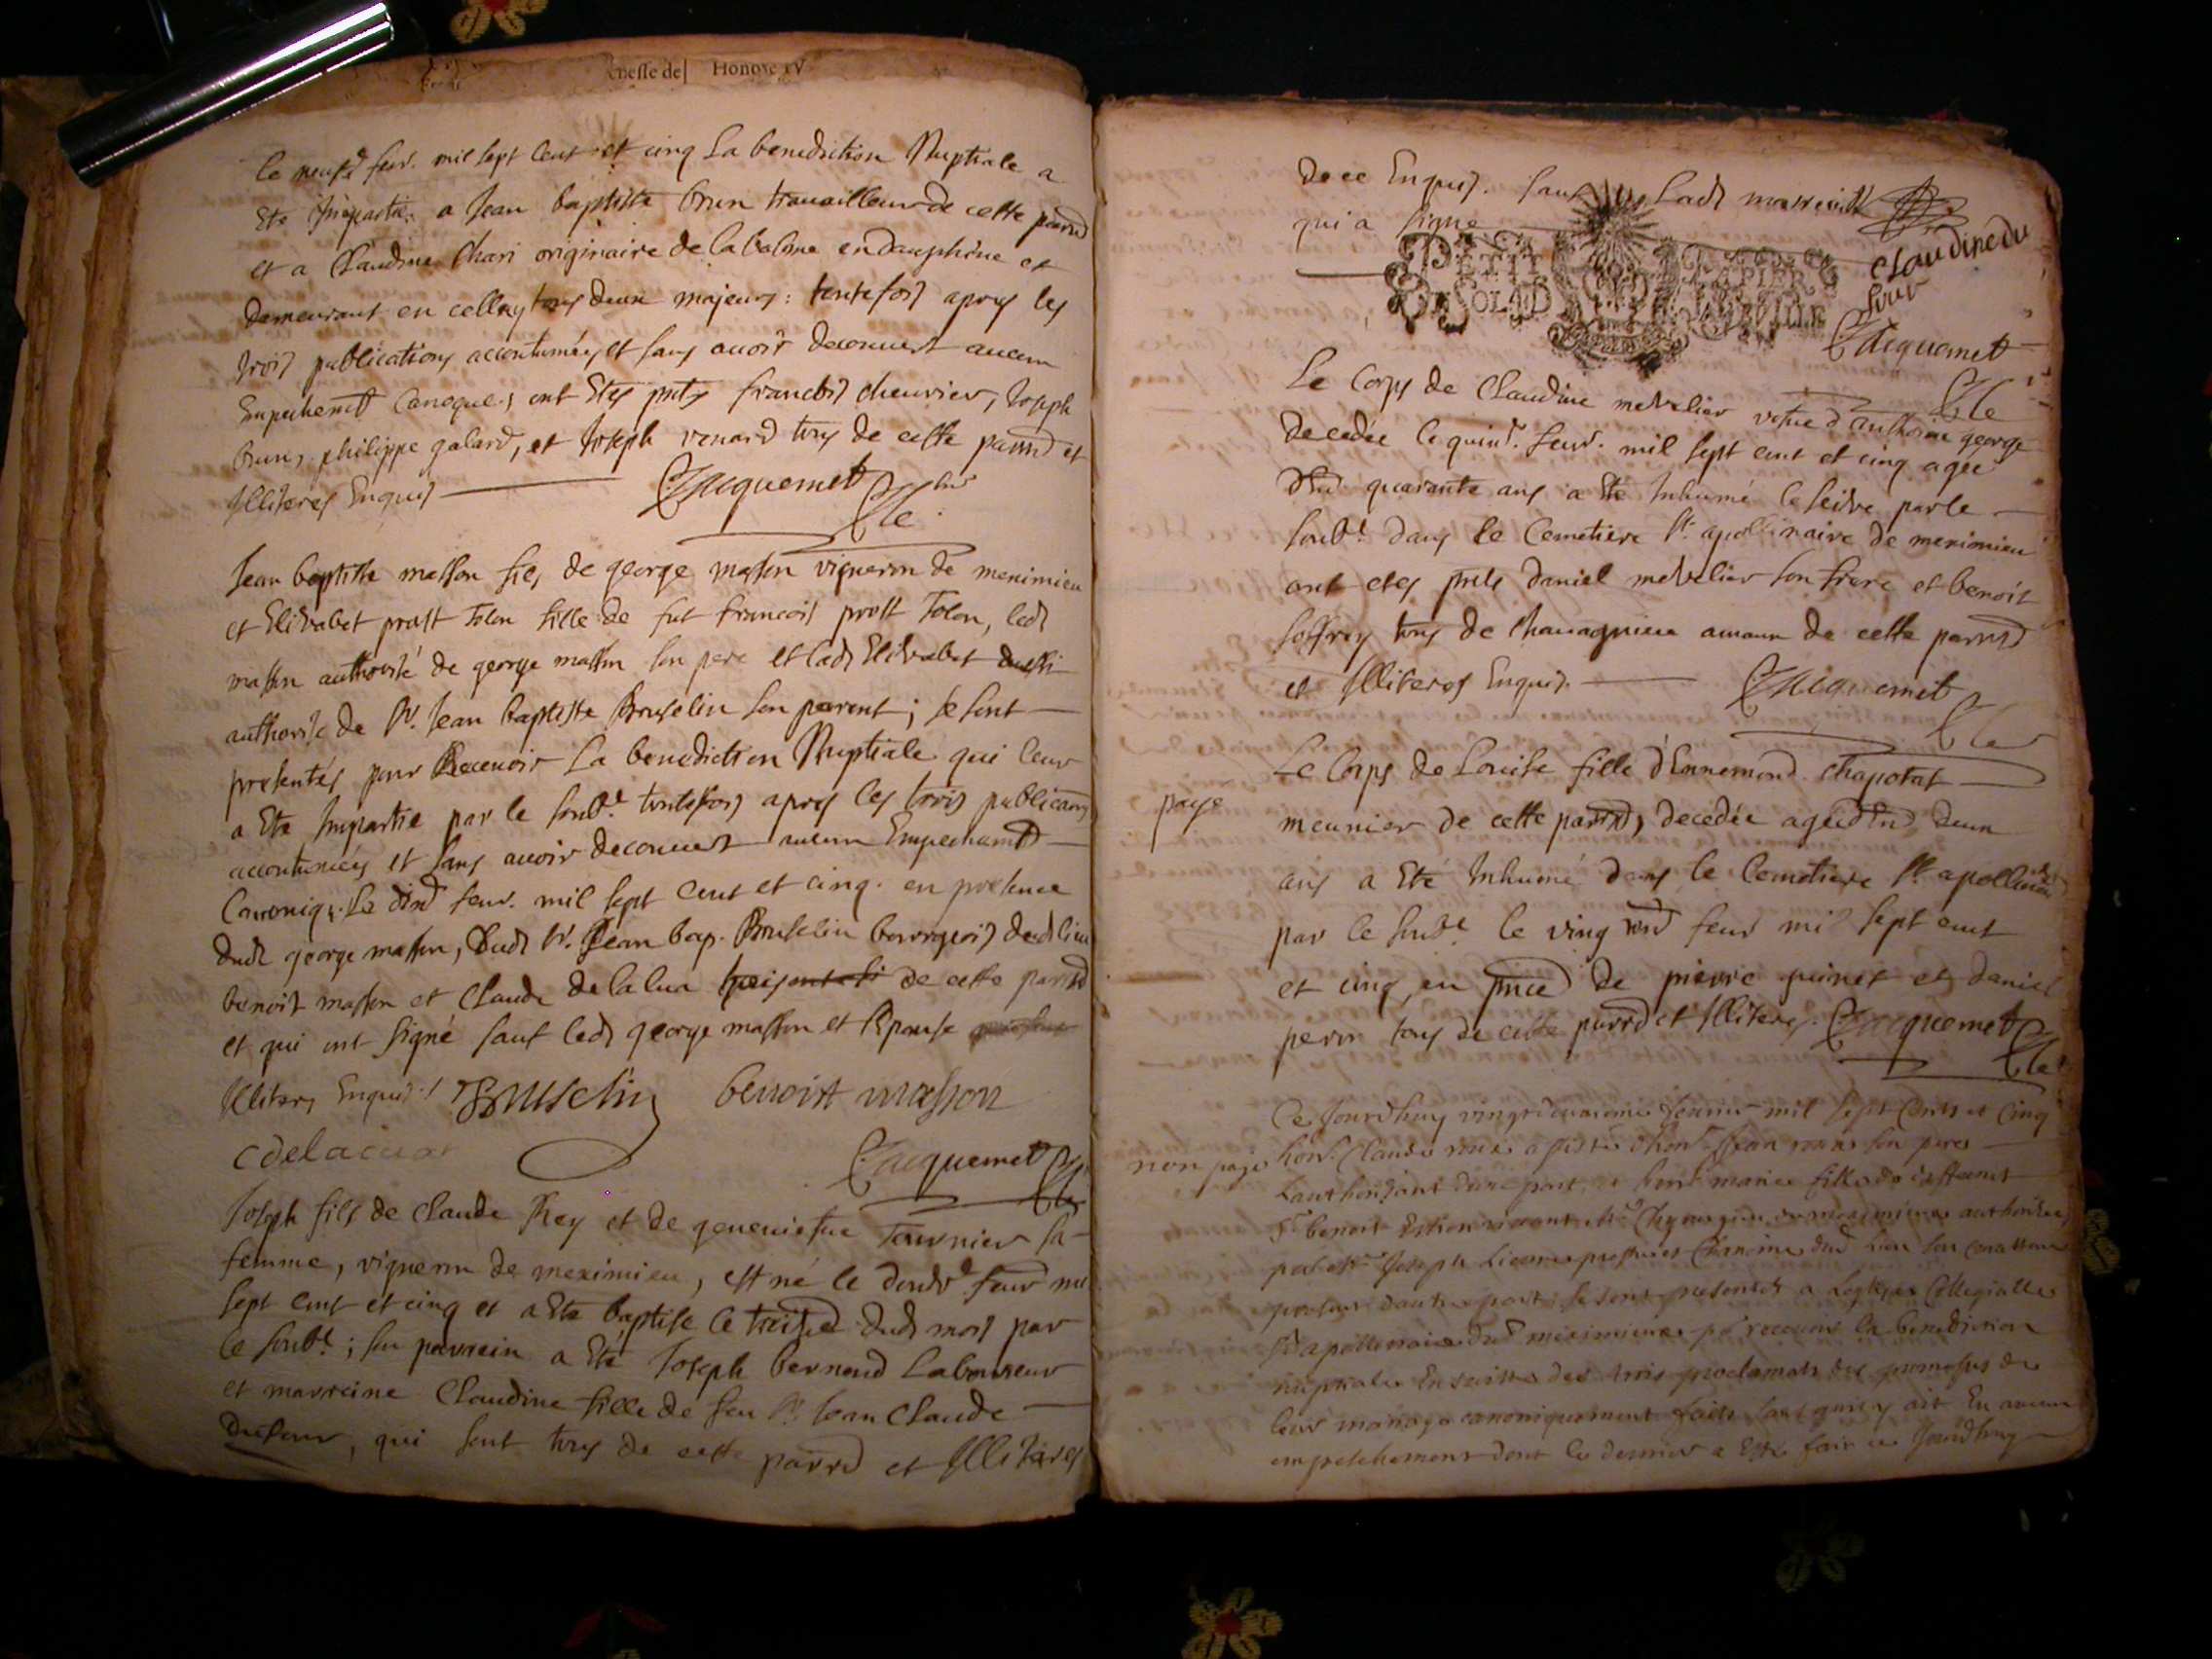 nesse de Honore IV
Le neufe feur. mil sept Cent et cinq La benediction Nuptiale a
Ete Impartie a Jean baptiste brun travailleur de cette parrd
et a Claudine Chari originaire de la balme en dauphine et
demeurant en celley tous deux majeurs: toutefois apres les
trois publications accoutumées et sans auoir decouuert aucun
Empechemt Canoque; ont Etes pnts francois cheurier, Joseph
brun, philippe galard, et Joseph renard tous de cette parrd et
Illiteres Enquis Jacquemet
Jean baptiste masson fils de george masson vigneron de meximieu
et Elizabet prost Tolon fille de fut francois prost Tolon, led
masson authorisé de george masson son pere et lad Elizabet
authorise de Sr. Jean baptiste Bruselin son parent; se sont
presentés pour Receuoir La benediction Nuptiale qui leur
a Ete Impartie par le soubé toutefois apres les trois publicaons
accoutumées et sans auoir decouuert aucun Empechamt
Canoniq. Le dixe feur. mil sept Cent et cinq. en presence
dud george masson, Dud Sr. Jean bap. Bruselin bourgeois dud lieu
benoit masson et Claude de la cua de cette parrd
et qui ont signé sauf led george masson et Epouse
Illiters Enquis Bruselin benoist masson
C delacua Jacquemet
Joseph fils de Claude Rey et de geneuiefue Tournier sa
femme, vigneron de meximieu, est né le douze feur mil
sept cent et cinq et a Ete baptise le treize dud mois par
le soubé; son parrein a Eté Joseph bernard Laboureur
et marreine Claudine fille de feu Sr Jean Claude
Dufour, qui sont tous de cette parrd et Illiteres
de ce Enquis. sauf lad marreine
qui a signe Claudine du
four
PETIT PAPIER
Jacquemet
Le Corps de Claudine metralier vefue d'anthoine george
decedée le quinze feur. mil sept cent et cinq agee
d'En quarante ans a Eté Inhumé le seize par le
soubé dans le Cemetiere St. apollinaire de meximieu
ont etes pnts daniel metralier son frere et benoit
Joffrey tous de Chauagnieu de cette parrd
et Illiteres Enquis. Jacquemet
Le Corps de Louise fille d'Ennemond Chapotat
paye
meunier de cette parrd, decedée agee d'En deux
ans a Eté Inhumé dans le Cemetiere St apollinaire
par le soubé le ving feur mil sept cent
et cinq, en pnce de pierre guinet et daniel
perin tous de cette parrd et Illiteres. Jacquemet
Ce Jourdhuy vingt deuxieme feurier mil sept Cents et Cinq
non paye hon. Claude roux assisté d'hon. Jean roux son pere
Lauthorizant d'une part, et marie fille de deffunct
Sr benoit viuant Mr Chyrurgien de meximieux authorisee
par Joseph Chanoine dud Lieu son curatteur
present d'autre part; se sont presentes a Leglise Collegialle
St apollinaire dud meximieux pr receuoir la benediction
nuptiale Ensuitte des trois proclamats des promesses de
leur mariage canoniquement faits sans quil y ait Eu aucun
empeschement dont le dernier a Esté fait ce Jourdhuy